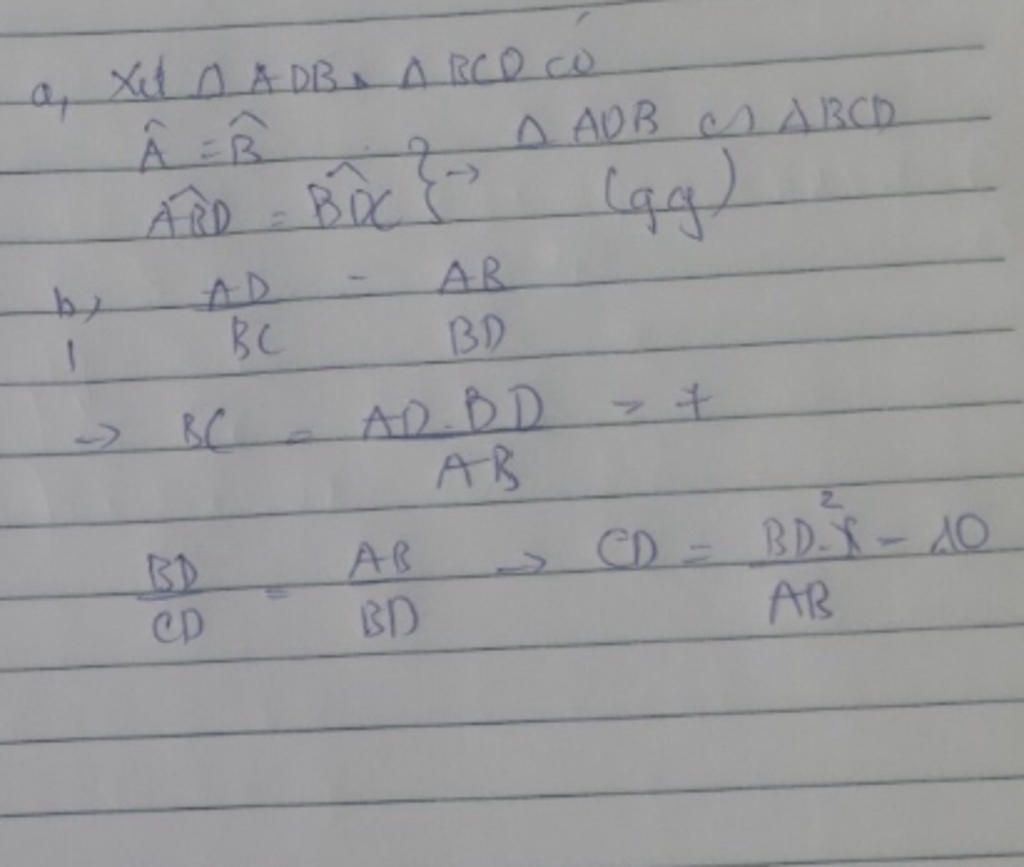 a, Xét Δ ADB, Δ BCD có
Â = B̂
ABD̂ = BDĈ } → Δ ADB ∽ ΔBCD (gg)
b, AD/BC = AB/BD
→ BC = AD.BD/AB = 7
BD/CD = AB/BD → CD = BD²/AB = 10